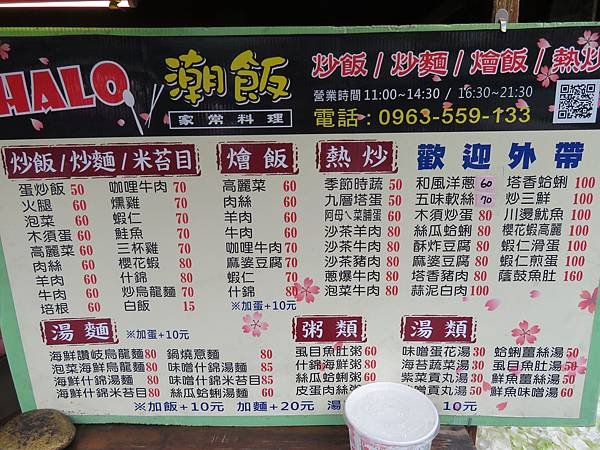 HALO 潮飯
家常料理
炒飯/炒麵/燴飯/熱炒
營業時間 11:00~14:30 / 16:30~21:30
電話:0963-559-133
炒飯/炒麵/米苔目
蛋炒飯 50
火腿 60
泡菜 60
木須蛋 60
高麗菜 60
肉絲 60
羊肉 60
牛肉 60
培根 60
咖哩牛肉 70
燻雞 70
蝦仁 70
鮭魚 70
三杯雞 70
櫻花蝦 80
什錦 80
炒烏龍麵 70
白飯 15
燴飯
高麗菜 60
肉絲 60
羊肉 60
牛肉 60
咖哩牛肉 70
麻婆豆腐 70
蝦仁 70
什錦 80
※加蛋+10元
熱炒
季節時蔬 50
九層塔蛋 50
阿母ㄟ菜脯蛋 60
沙茶羊肉 80
沙茶牛肉 80
沙茶豬肉 80
蔥爆牛肉 80
泡菜牛肉 80
歡迎外帶
和風洋蔥 60
五味軟絲 70
木須炒蛋 80
絲瓜蛤蜊 80
酥炸豆腐 80
麻婆豆腐 80
塔香豬肉 80
蒜泥白肉 100
塔香蛤蜊 100
炒三鮮 100
川燙魷魚 100
櫻花蝦高麗 100
蝦仁滑蛋 100
蝦仁煎蛋 100
蔭鼓魚肚 160
湯麵
※加蛋+10元
海鮮讚岐烏龍麵 80
泡菜海鮮烏龍麵 80
海鮮什錦湯麵 80
海鮮什錦米苔目 80
鍋燒意麵 80
味噌什錦湯麵 85
味噌什錦米苔目 85
絲瓜蛤蜊湯麵 60
粥類
虱目魚肚粥 60
什錦海鮮粥 80
絲瓜蛤蜊粥 60
皮蛋肉絲粥
湯類
味噌蛋花湯 30
海苔蔬菜湯 30
紫菜貢丸湯 30
味噌貢丸湯 50
蛤蜊薑絲湯 50
虱目魚肚湯 50
鮮魚薑絲湯 50
鮮魚味噌湯 60
※加飯+10元 加麵+20元 湯 10元